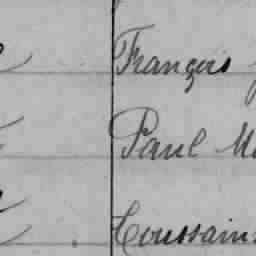 François
Paul
Toussain